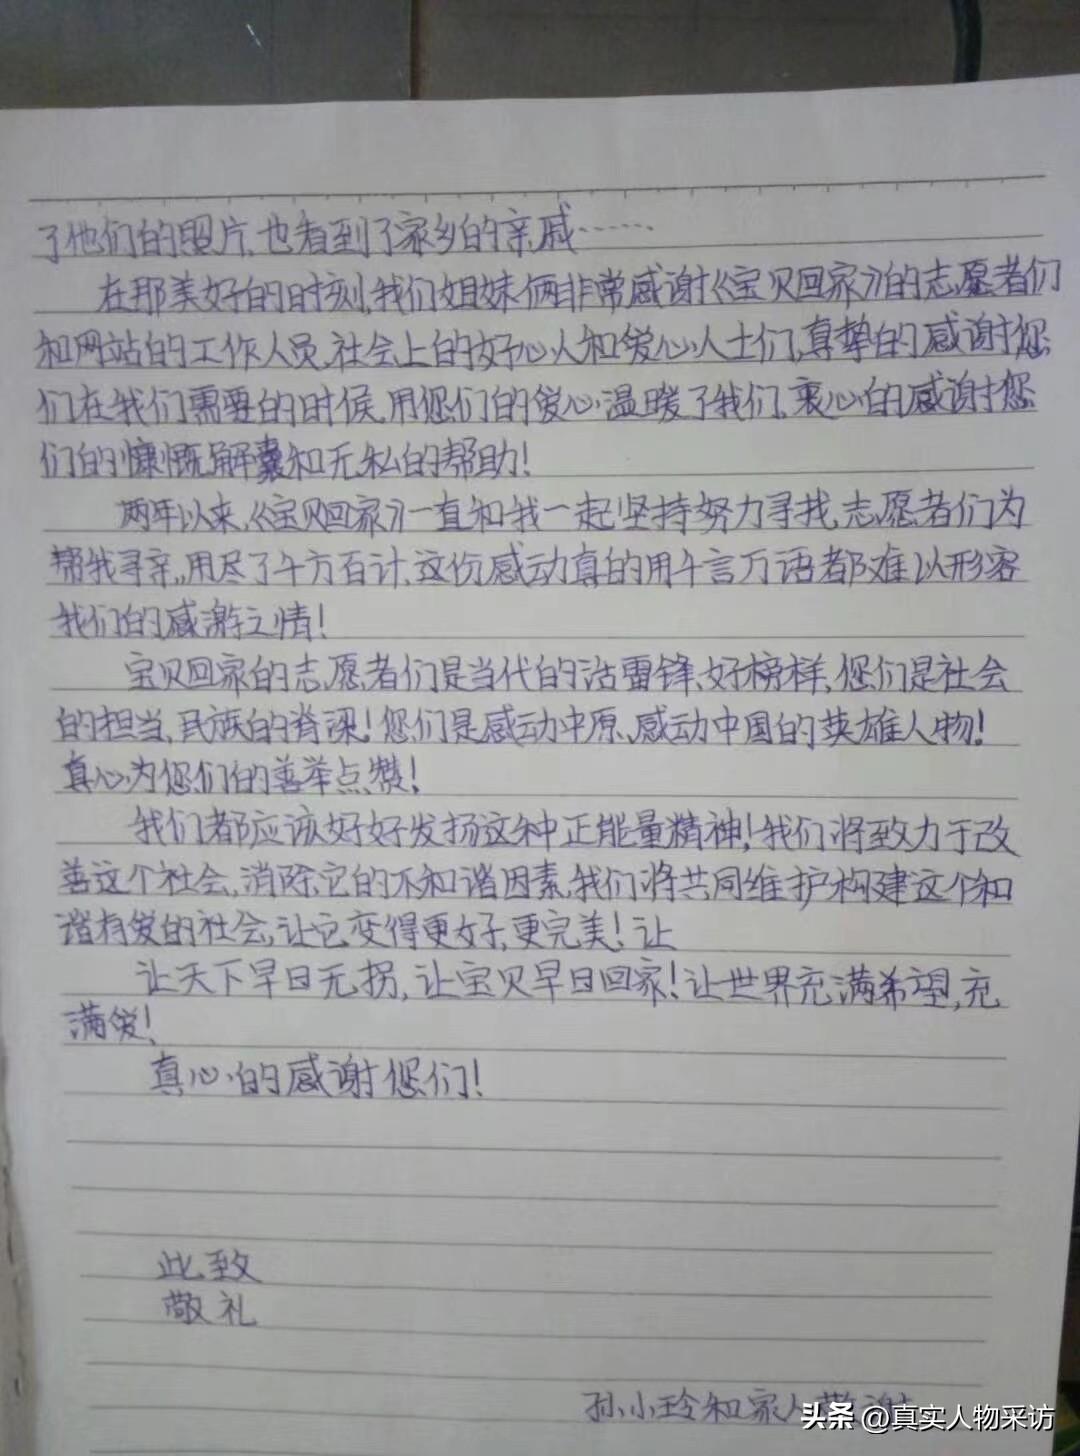 了他们的照片,也看到了家乡的亲戚……
在那美好的时刻,我们姐妹俩非常感谢《宝贝回家》的志愿者们
和网站的工作人员,社会上的好心人和爱心人士们,真挚的感谢您
们在我们需要的时候,用您们的爱心温暖了我们,衷心的感谢您
们的慷慨解囊和无私的帮助!
两年以来,《宝贝回家》一直和我一起坚持努力寻找,志愿者们为
帮我寻亲,用尽了千方百计,这份感动真的用千言万语都难以形容
我们的感谢之情!
宝贝回家的志愿者们是当代的活雷锋、好榜样,您们是社会
的担当,民族的脊梁!您们是感动中原、感动中国的英雄人物!
真心为您们的善举点赞!
我们都应该好好发扬这种正能量精神!我们将致力于改
善这个社会,消除它的不和谐因素,我们将共同维护构建这个和
谐有爱的社会,让它变得更好,更完美!让
让天下早日无拐,让宝贝早日回家!让世界充满希望,充
满爱!
真心的感谢您们!
此致
敬礼
孙小玲和家人敬谢
头条 @真实人物采访